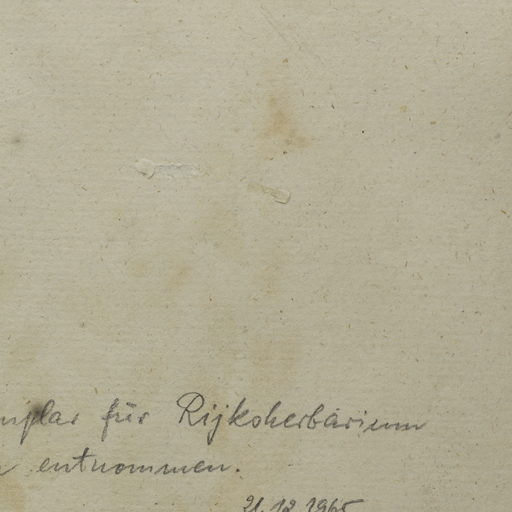 für Rijksherbarium
entnommen.
21.12.1965